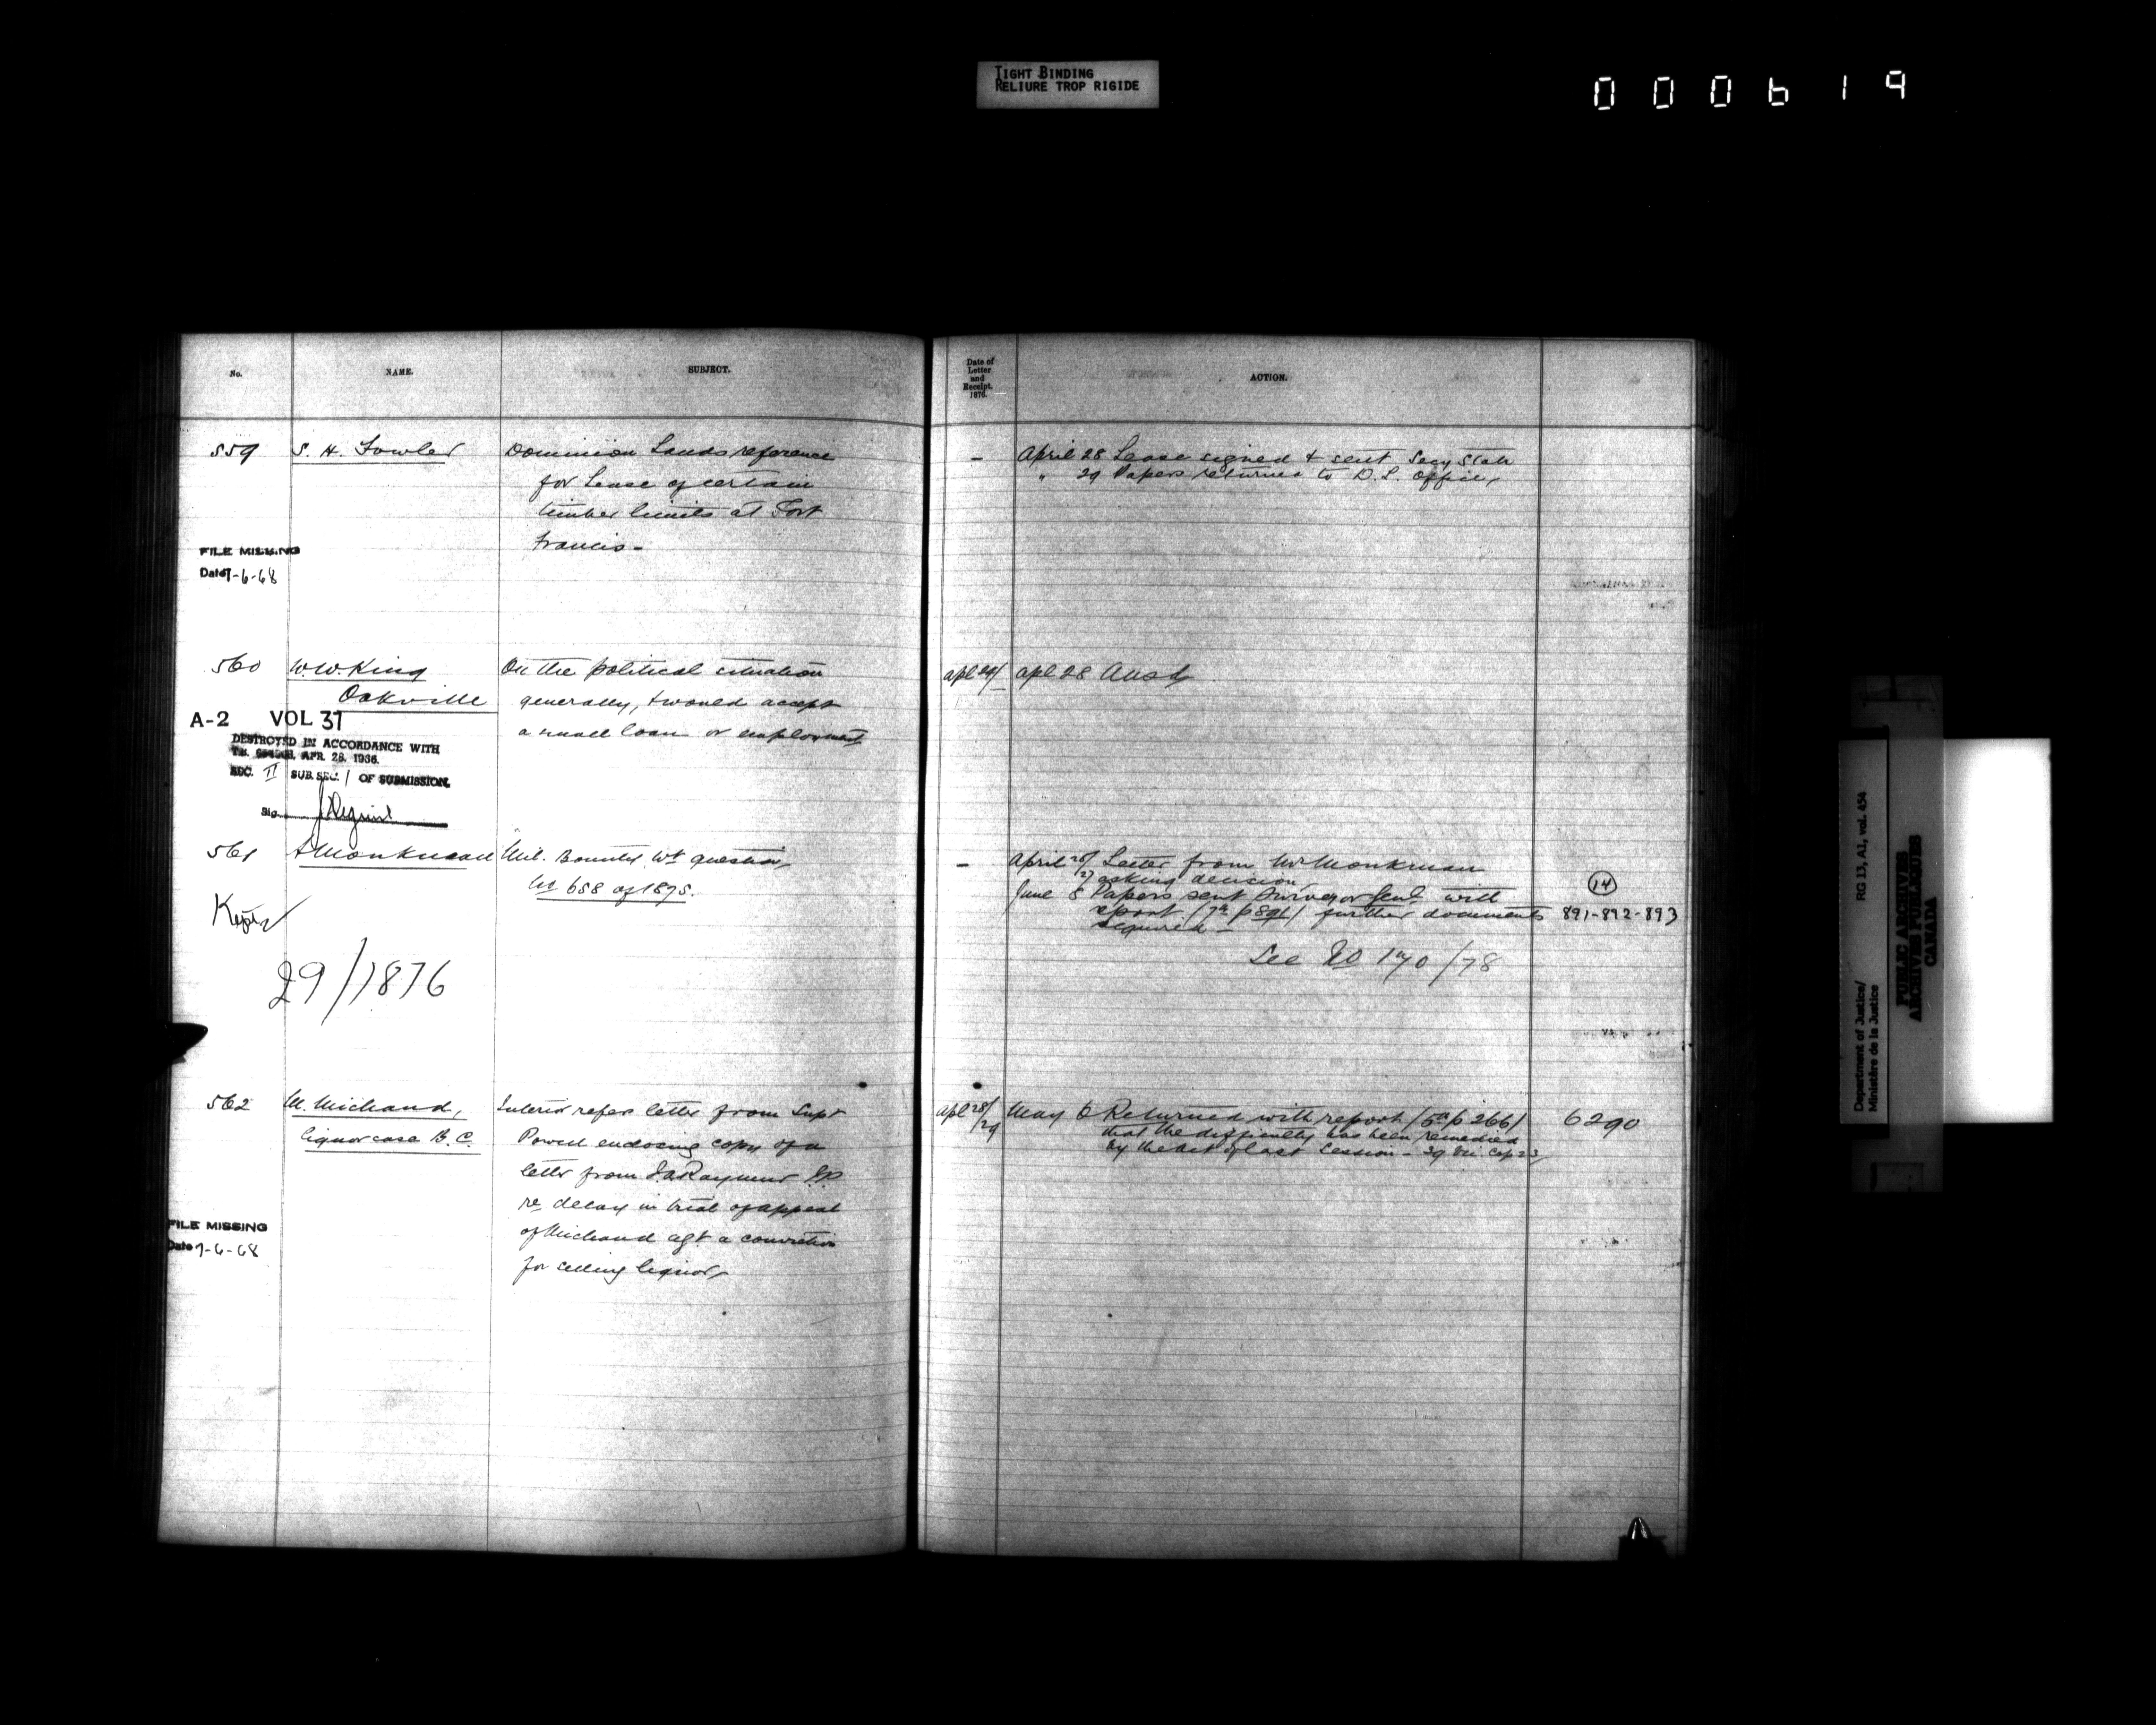 TIGHT BINDING
RELIURE TROP RIGIDE
000619
No.
NAME.
SUBJECT.
Date of
Letter
and
Receipt.
1876.
ACTION.
559
S. H. Fowler
Dominion Lands reference
for Lease of certain
timber limits at Fort
Francis -
FILE MISSING
Date 7-6-68
- April 28 Lease signed & sent Secy State
" 29 Papers returned to D. L. Office,
560
W.W. King
Oakville
On the political situation
generally, & would accept
a small loan or employment
apl 29/ apl 28 Ansd
A-2 VOL 37
DESTROYED IN ACCORDANCE WITH
APR. 28, 1936.
SEC. II SUB. SEC. 1 OF SUBMISSION.
Sig.
561
A Monkman
Mil. Bounty Wt question,
No 658 of 1875.
Kept
29/1876
- April 26/ Letter from Mr Monkman
27 asking decision
June 8 Papers sent Surveyor Genl with
report (7a p 891) further documents
required -
14
891-892-893
See No 170/78
562
M. Michaud,
liquor case B. C.
Interior refers letter from Supt
Powell enclosing copy of a
letter from J. A. Raymur J.P.
re delay in trial of appeal
of Michaud agt a conviction
for selling liquor,
FILE MISSING
Date 7-6-68
apl 28/29 May 6 Returned with report (5a p 266)
that the difficulty has been remedied
by the act of last Session - 39 Vic. Cap 23,
6290
Department of Justice/
Ministère de la Justice
RG 13, A1, vol. 454
PUBLIC ARCHIVES
ARCHIVES PUBLIQUES
CANADA